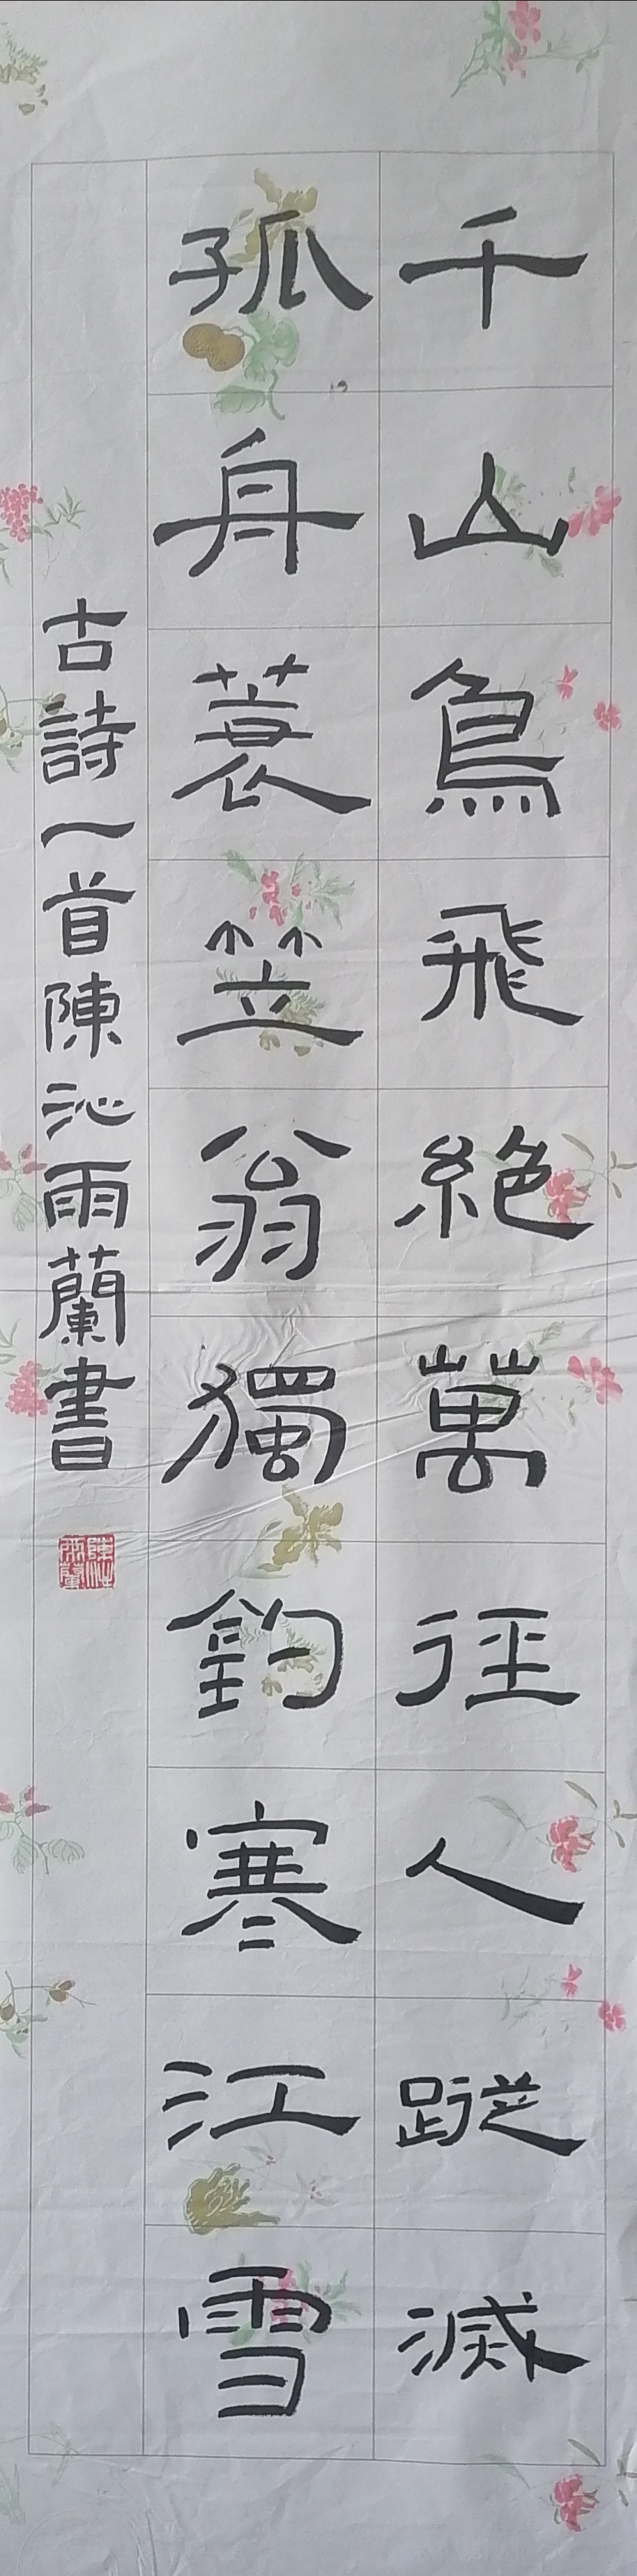 千山鳥飛絶萬徑人蹤滅
孤舟蓑笠翁獨釣寒江雪
古詩一首陳沁雨蘭書